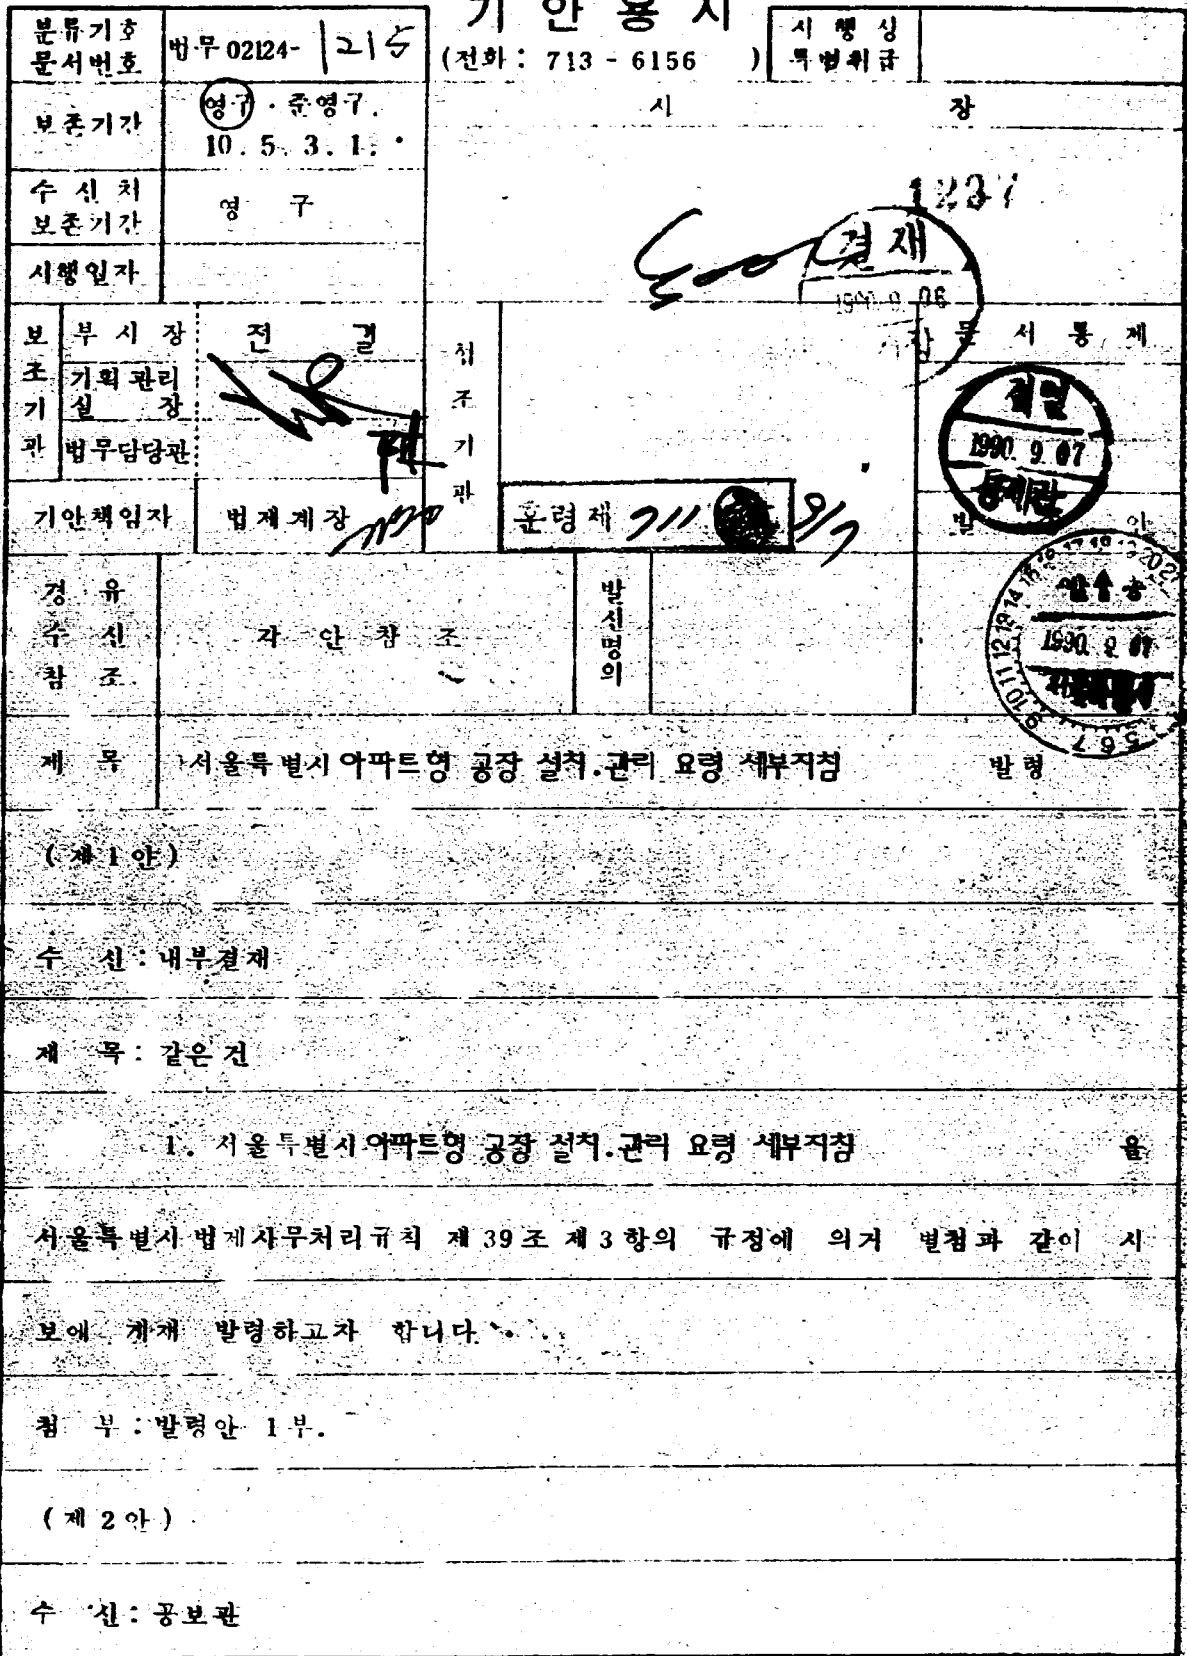 기 안 용 지
분류기호
문서번호
법무 02124- 1215
(전화 : 713 - 6156 )
시 행 상
특별취급
보존기간
영구 · 준영구.
10. 5. 3. 1.
시 장
수 신 처
보존기간
영 구
시행일자
결 재
보 조 기 관
부 시 장
전 결
기획관리
실 장
법무담당관
협 조 기 관
문 서 통 제
검열
1990. 9. 07
통제관
기안책임자
법제계장
훈령제 711
9/7
발
경 유
수 신
참 조
각 안 참 조
발신명의
발 송
1990. 9. 07
제 목
서울특별시 아파트형 공장 설치.관리 요령 세부지침 발령
( 제 1 안 )
수 신 : 내부결재
제 목 : 같은 건
1. 서울특별시 아파트형 공장 설치.관리 요령 세부지침 을
서울특별시 법제사무처리규칙 제 39 조 제 3 항의 규정에 의거 별첨과 같이 시
보에 게재 발령하고자 합니다.
첨 부 : 발령안 1 부.
( 제 2 안 )
수 신 : 공보관